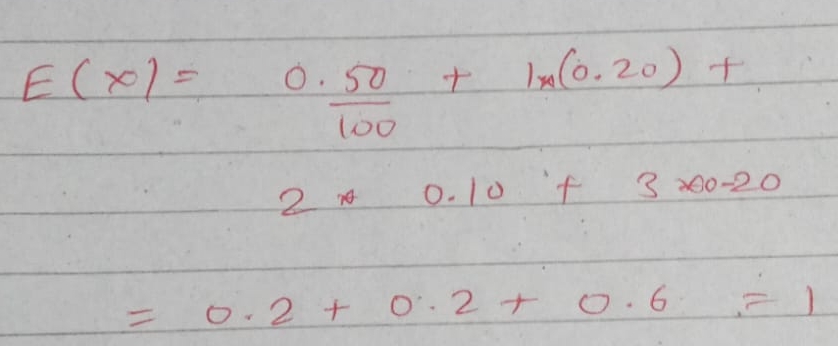 E(x) = 0.50/100 + 1*(0.20) +
2 * 0.10 + 3 * 0.20
= 0.2 + 0.2 + 0.6 = 1